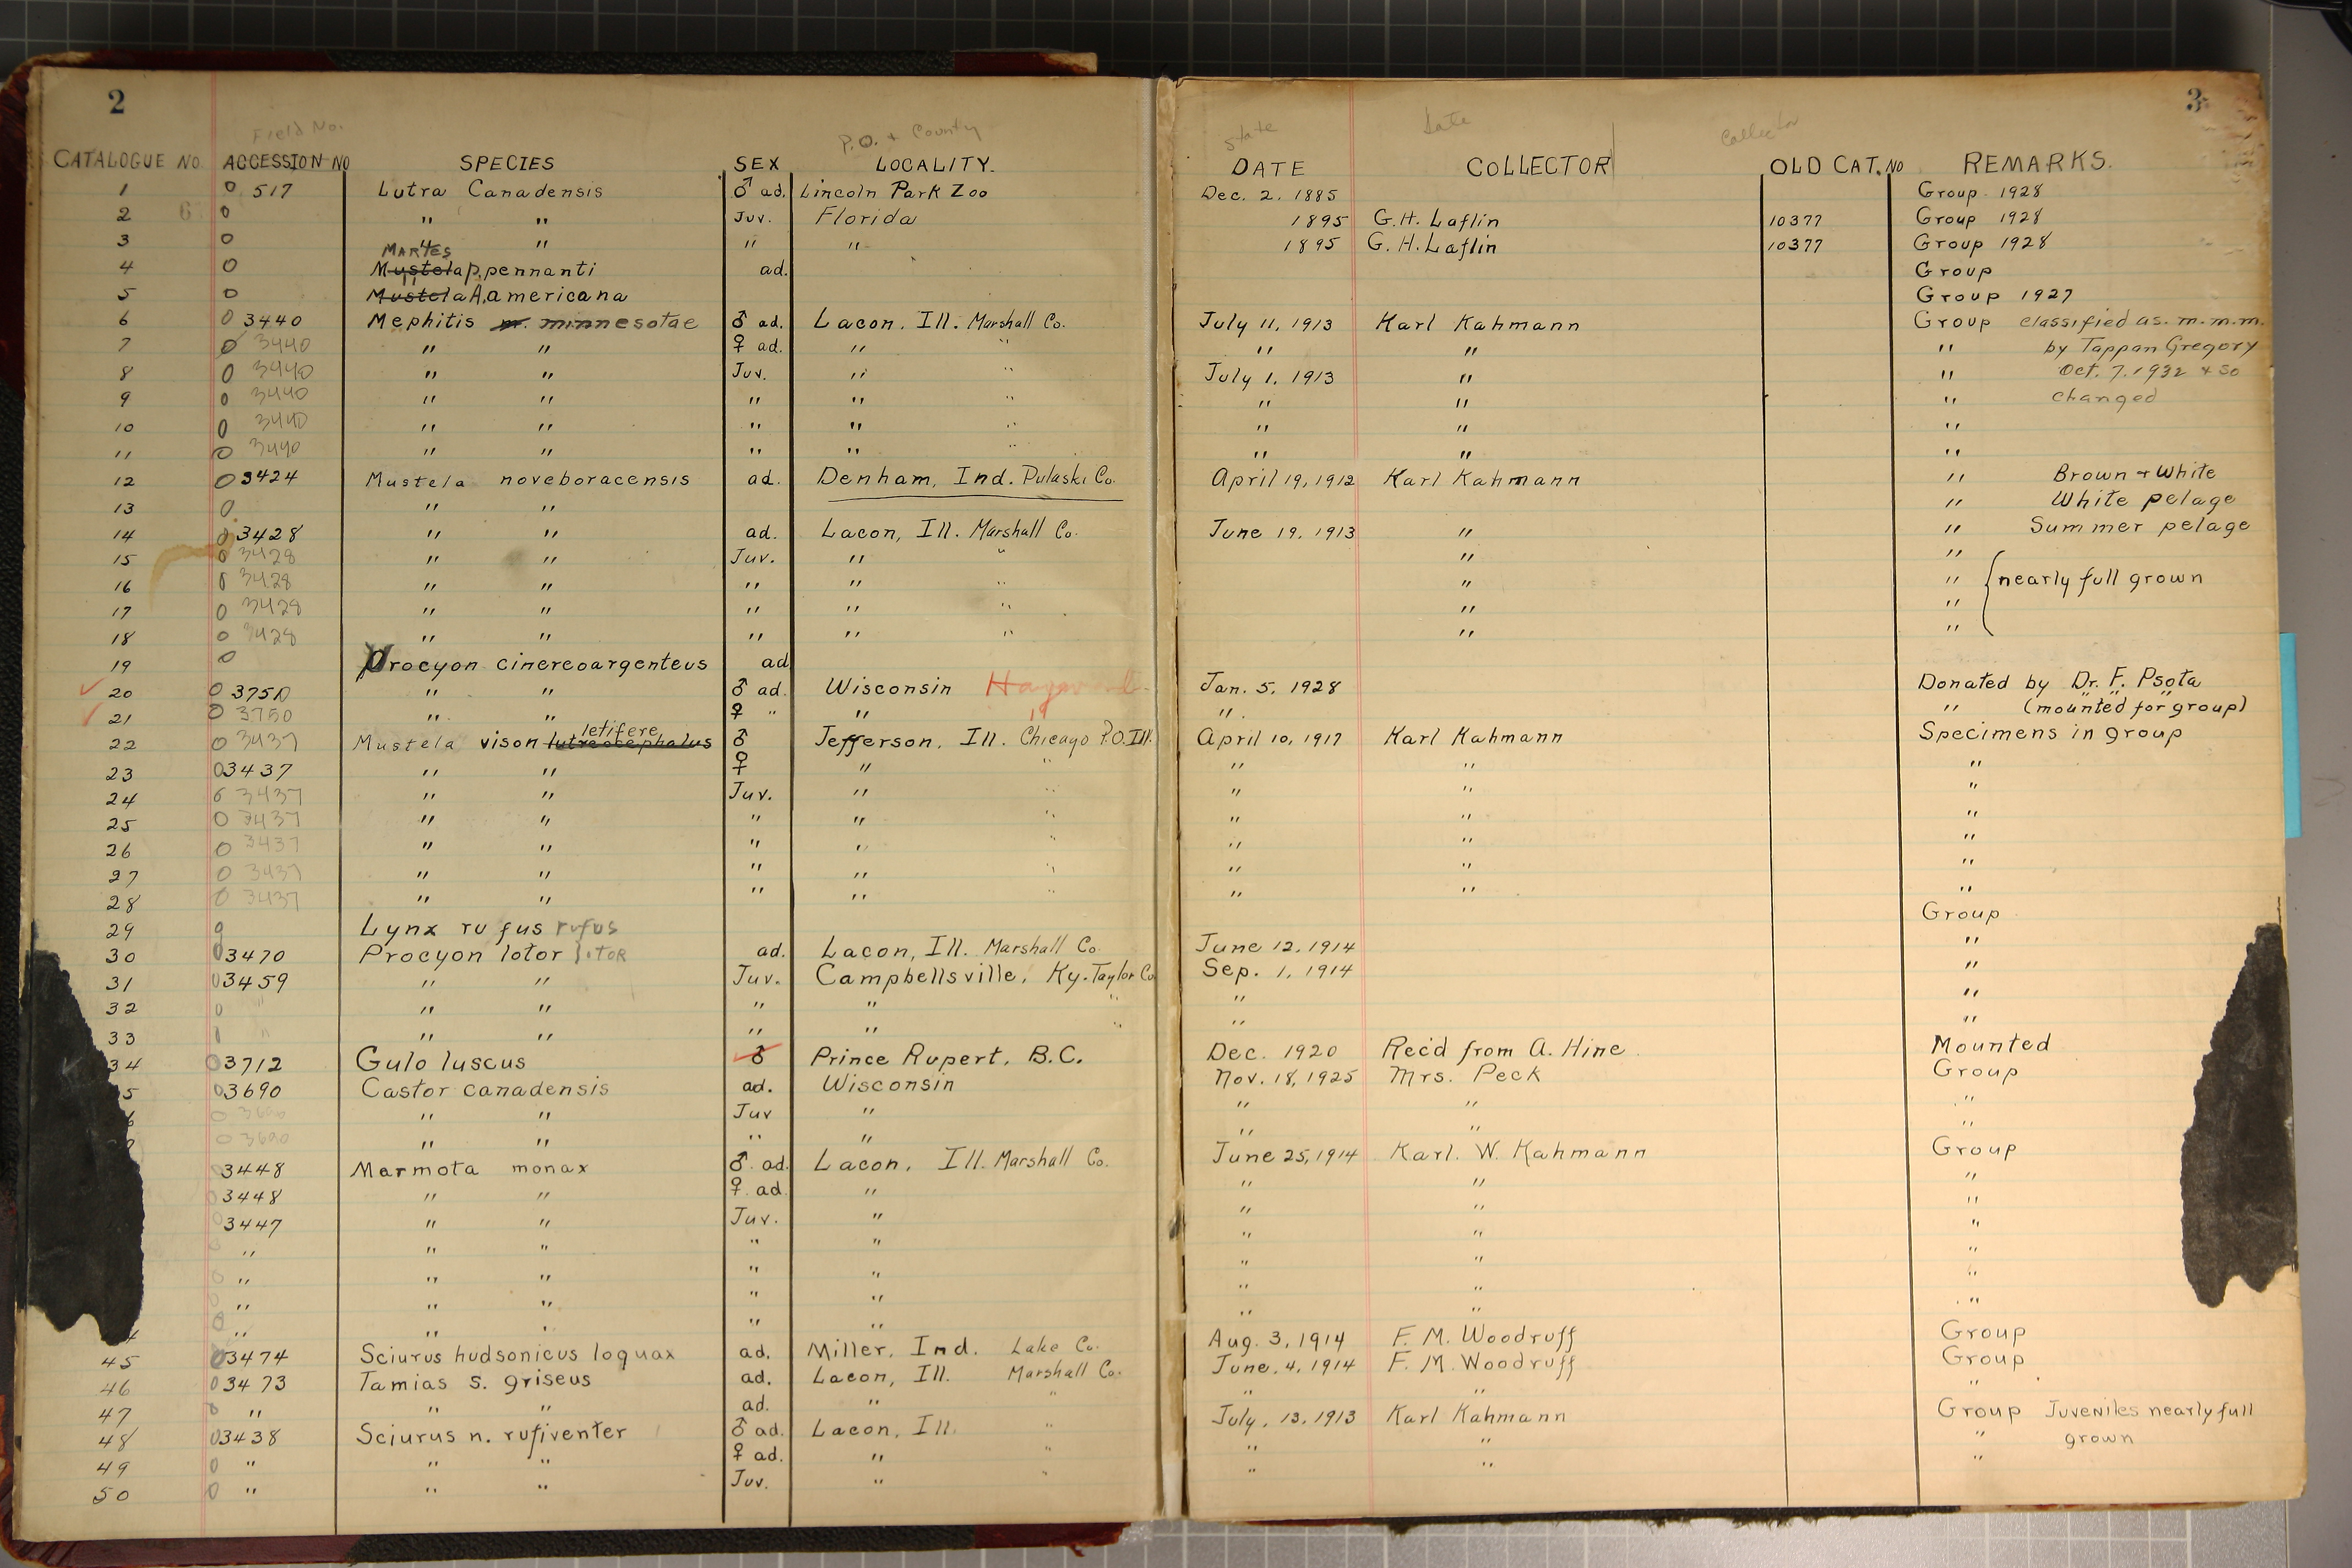 2
3
Field No. P.O. + County State Date Collector
CATALOGUE NO. ACCESSION NO SPECIES SEX LOCALITY. DATE COLLECTOR OLD CAT. NO REMARKS.
1 0 517 Lutra Canadensis ♂ ad. Lincoln Park Zoo Dec. 2. 1885 Group 1928
2 0 " " Juv. Florida 1895 G.H. Laflin 10377 Group 1928
3 0 " " " " 1895 G.H. Laflin 10377 Group 1928
MARTES
4 0 Mustela p. pennanti ad. Group
5 0 " Mustela A. americana Group 1927
6 0 3440 Mephitis m. minnesotae ♂ ad. Lacon. Ill. Marshall Co. July 11, 1913 Karl Kahmann Group classified as. m.m.m.
7 0 3440 " " ♀ ad. " " " " " by Tappan Gregory
8 0 3440 " " Juv. " " July 1, 1913 " " Oct. 7. 1932 + so
9 0 3440 " " " " " " " " changed
10 0 3440 " " " " " " " "
11 0 3440 " " " " " " " "
12 0 3424 Mustela noveboracensis ad. Denham, Ind. Pulaski Co. April 19, 1912 Karl Kahmann " Brown + White
13 0 " " " White pelage
14 0 3428 " " ad. Lacon, Ill. Marshall Co. June 19. 1913 " " Summer pelage
15 0 3428 " " Juv. " " " "
16 0 3428 " " " " " " " { nearly full grown
17 0 3428 " " " " " " "
18 0 3428 " " " " " " "
19 0 Urocyon cinereoargenteus ad
20 0 3750 " " ♂ ad. Wisconsin Hayward Jan. 5, 1928 Donated by Dr. F. Psota
21 0 3750 " " ♀ " " " " " " " " (mounted for group)
letifere
22 0 3437 Mustela vison lutreocephalus ♂ Jefferson. Ill. Chicago P.O. Ill. April 10, 1917 Karl Kahmann Specimens in group
23 0 3437 " " ♀ " " " " "
24 0 3437 " " Juv. " " " " "
25 0 3437 " " " " " " " "
26 0 3437 " " " " " " " "
27 0 3437 " " " " " " " "
28 0 3437 " " " " " " " "
29 0 Lynx rufus rufus Group
30 0 3470 Procyon lotor lotor ad. Lacon, Ill. Marshall Co. June 12, 1914 "
31 0 3459 " " Juv. Campbellsville, Ky. Taylor Co. Sep. 1, 1914 "
32 0 " " " " " " " "
33 0 " " " " " " "
34 0 3712 Gulo luscus ♂ Prince Rupert, B.C. Dec. 1920 Rec'd from A. Hine Mounted
5 0 3690 Castor canadensis ad. Wisconsin Nov. 18, 1925 Mrs. Peck Group
6 0 3690 " " Juv " " " "
0 3690 " " " " " " "
3448 Marmota monax ♂ ad. Lacon, Ill. Marshall Co. June 25, 1914 Karl. W. Kahmann Group
0 3448 " " ♀ ad. " " " "
0 3447 " " Juv. " " " "
0 " " " " " " " "
0 " " " " " " " "
0 " " " " " " " "
0 " " " " "
45 0 3474 Sciurus hudsonicus loquax ad. Miller, Ind. Lake Co. Aug. 3, 1914 F. M. Woodruff Group
46 0 3473 Tamias s. griseus ad. Lacon, Ill. Marshall Co. June. 4, 1914 F. M. Woodruff Group
47 0 " " " ad. " " " " "
48 0 3438 Sciurus n. rufiventer ♂ ad. Lacon, Ill. " July. 13, 1913 Karl Kahmann Group Juveniles nearly full
49 0 " " " ♀ ad. " " " " " grown
50 0 " " " Juv. " " " " "